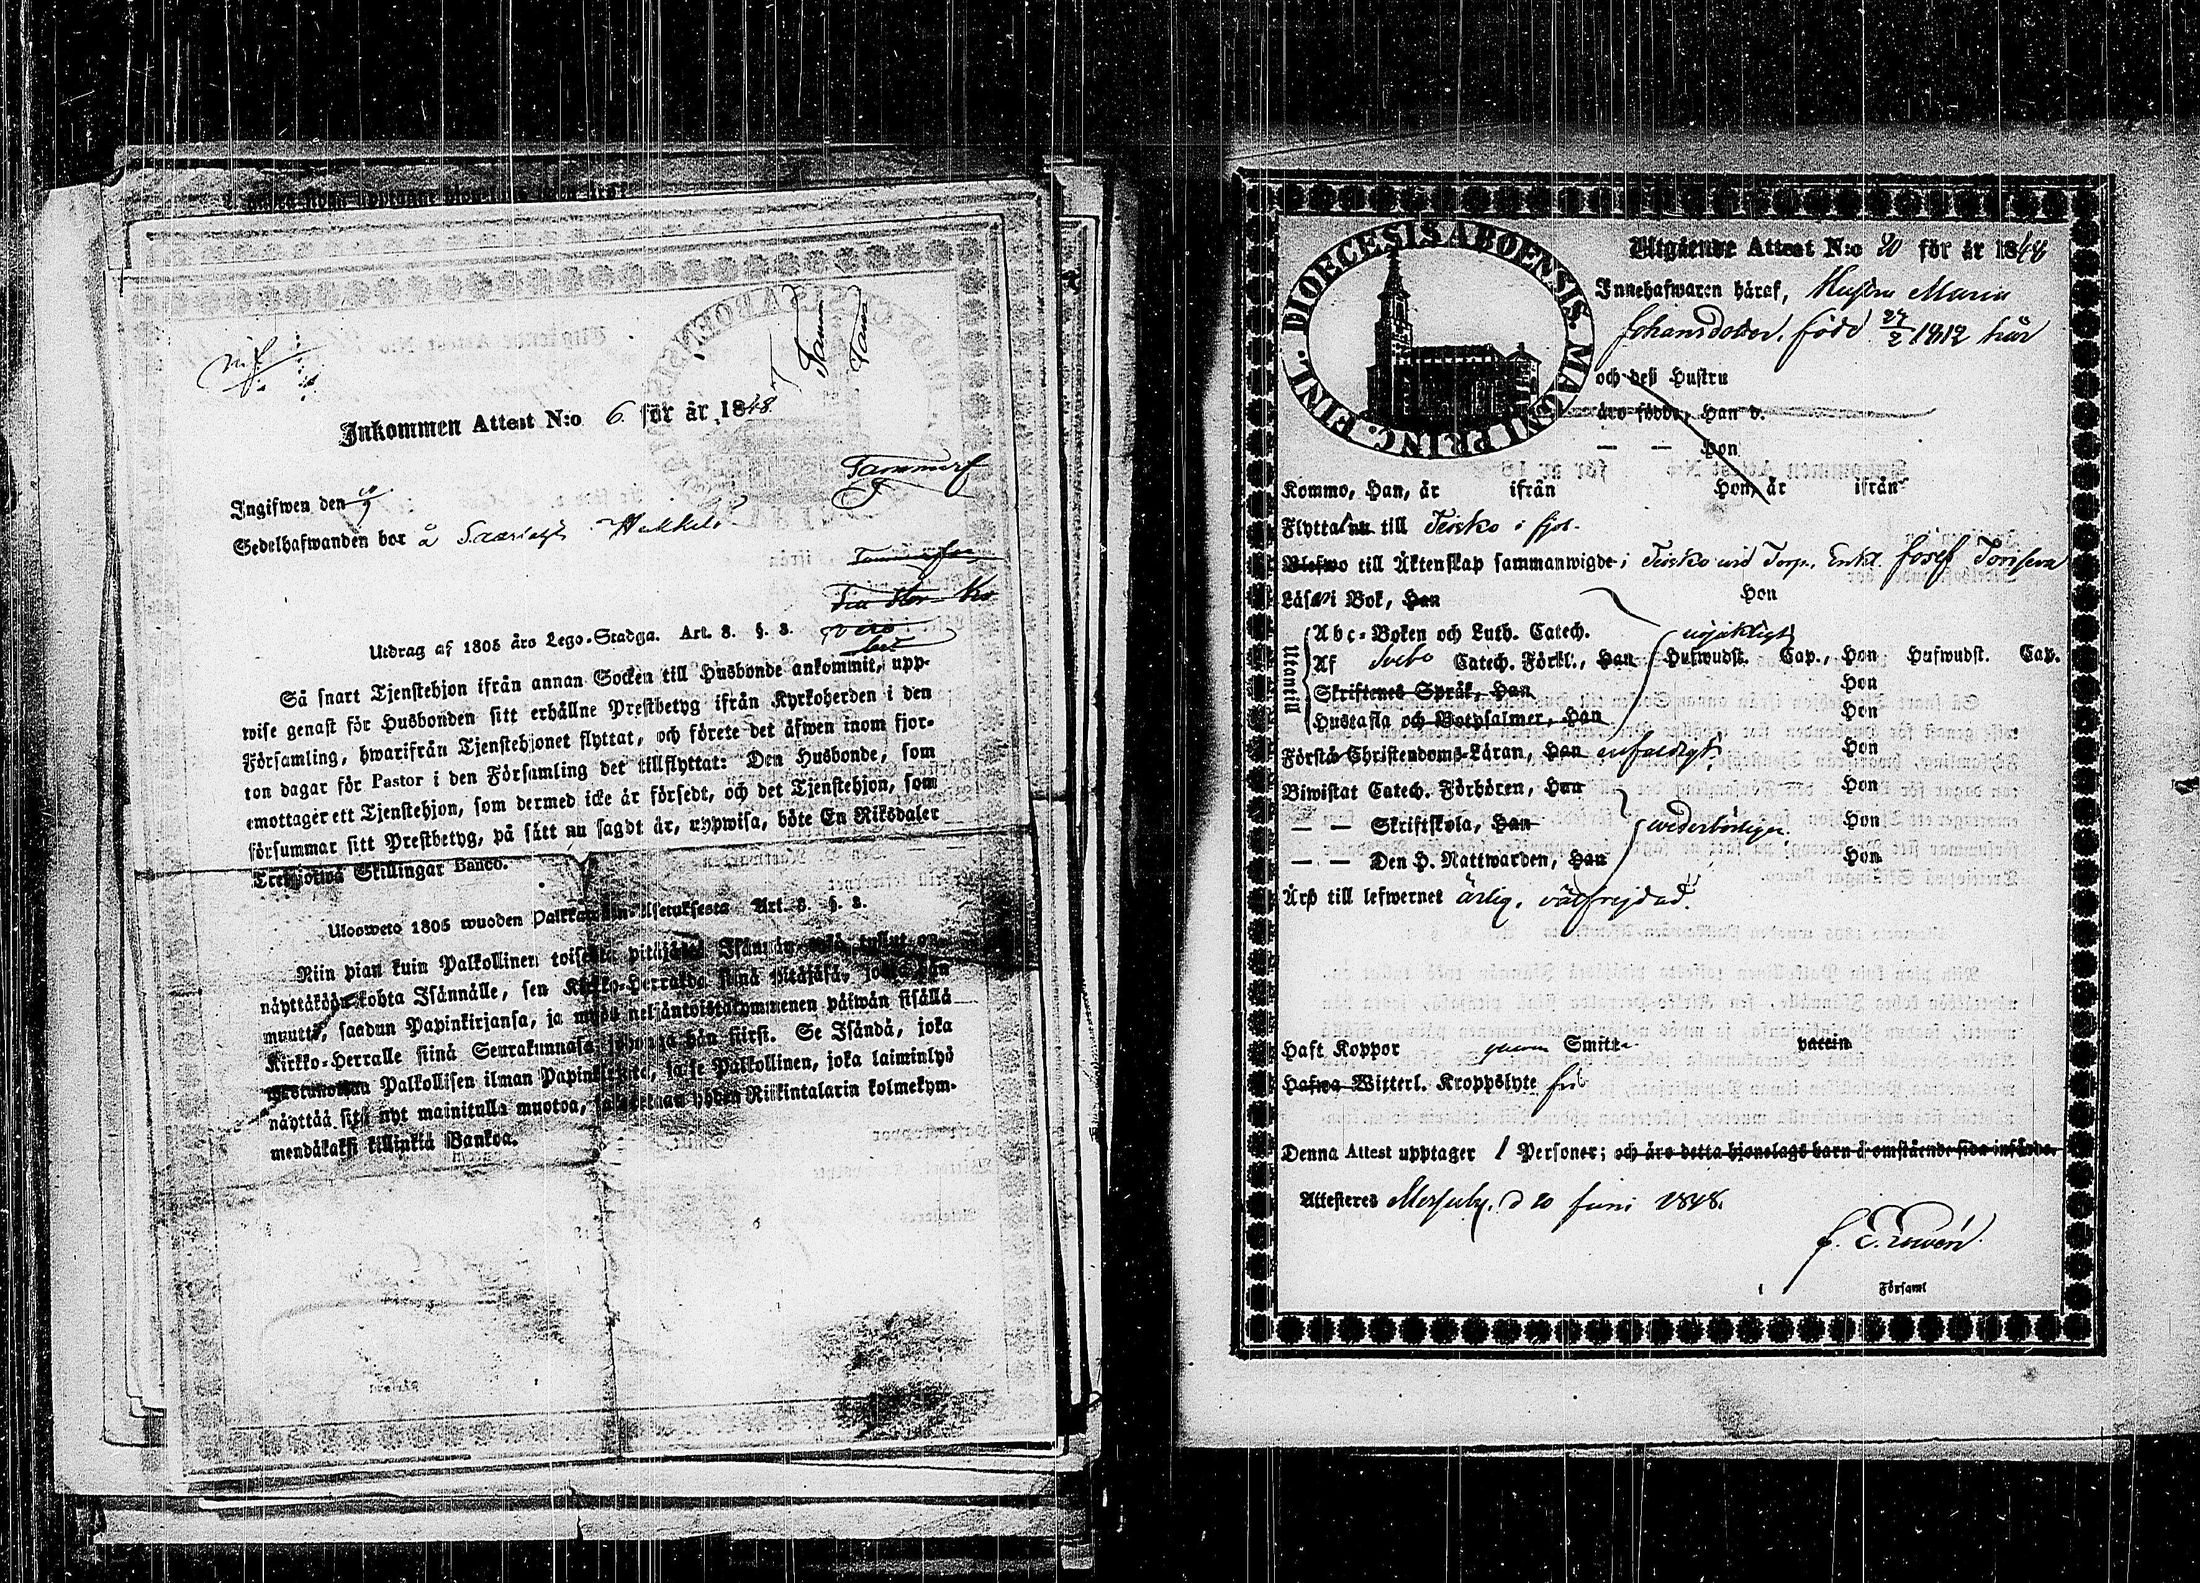 Inkommen Attest N:o 6. för år 1848.
Tammerf
Ingifwen den
Sedelhafwanden bor å
Utdrag af 1805 års Lego-Stadga. Art. 8. §. 3.
Så snart Tjenstehjon ifrån annan Socken till Husbonde ankommit, upp-
wise genast för Husbonden sitt erhållne Prestbetyg ifrån Kyrkoherden i den
Församling, hwarifrån Tjenstehjonet flyttat, och förete det äfwen inom fjor-
ton dagar för Pastor i den Församling det tillflyttat: Den Husbonde, som
emottager ett Tjenstehjon, som dermed icke är försedt, och det Tjenstehjon, som
försummar sitt Prestbetyg, på sätt nu sagdt är, uppwisa, böte En Riksdaler
Trettiotwå Skillingar Banco.
Ulosweto 1805 wuoden Palkkawäen-Asetuksesta Art. 8. §. 3.
Niin pian kuin Palkollinen toisesta pitäjästä Isännän tykö tullut on,
näyttäköön kohta Isännälle, sen Kirkko-Herralda siinä pitäjäsä, josta hän
muutti, saadun Papinkirjansa, ja myös neljäntoistakymmenen päiwän sisällä
Kirkko-Herralle siinä Seurakunnasa, johonga hän siirsi. Se Isändä, joka
Palkollisen ilman Papinkirjata, ja se Palkollinen, joka laiminlyö
näyttää sitä nyt mainitulla muotoa, yhden Riikintalarin kolmekym-
mendäkaksi killinkiä Bankoa.
DIOECESIS ABOENSIS. MAGNI PRINC. FINL.
Utgående Attest N:o 20 för år 1848
Innehafwaren häraf, Hustru Maria
Johansdotter, född 27/2 1812 här
och deß Hustru
äro födde, Han d.
— — Hon
Kommo, Han, år ifrån Hon, år ifrån
Flyttat nu till Teisko i fjol.
Blefwo till Äktenskap sammanwigde i Teisko med Torp. Enkl. Josef
Läser i Bok, Han Hon
Utantill
Abc-Boken och Luth. Catech.
Af Svebo Catech. Förkl., Han Hufwudst. Cap., Hon Hufwudst. Cap.
Skriftenes Språk, Han Hon
Hustafla och Botpsalmer, Han Hon
Förstå Christendoms-Läran, Han enfaldigt. Hon
Biwistat Catech. Förhören, Han Hon
— — Skriftskola, Han wederbörligen. Hon
— — Den H. Nattwarden, Han Hon
Äro till lefwernet ärlig, välfrejdad.
Haft Koppor genom Smitta vaccin
Hafwa Witterl. Kroppslyte fri
Denna Attest upptager 1 Personer; och äro detta hjonelags barn å omstående sida införde.
Attesteres Messuby, d 20 Juni 1848.
Församl